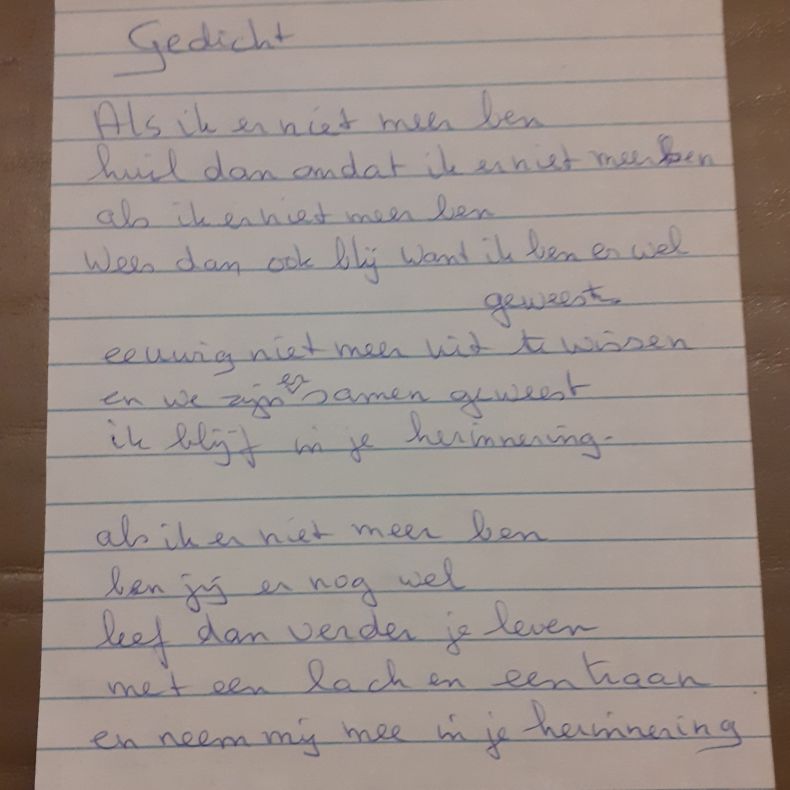 Gedicht
Als ik er niet meer ben
huil dan omdat ik er niet meer ben
als ik er niet meer ben
Wees dan ook blij want ik ben er wel
geweest.
eeuwig niet meer uit te wissen
en we zijn er samen geweest
ik blijf in je herinnering.
als ik er niet meer ben
ben jij er nog wel
leef dan verder je leven
met een lach en een traan
en neem mij mee in je herinnering